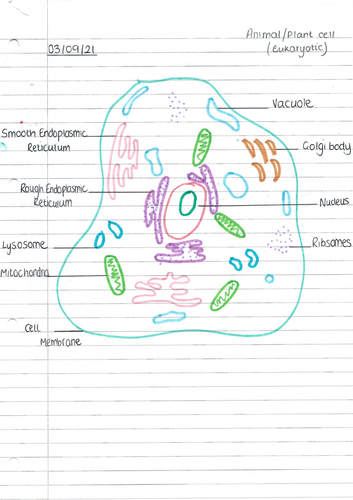 Animal/Plant cell
(eukaryotic)
03/09/21
Vacuole
Smooth Endoplasmic
Reticulum
Golgi body
Rough Endoplasmic
Reticulum
Nucleus
Lysosome
Ribsomes
Mitochondria
Cell
Membrane